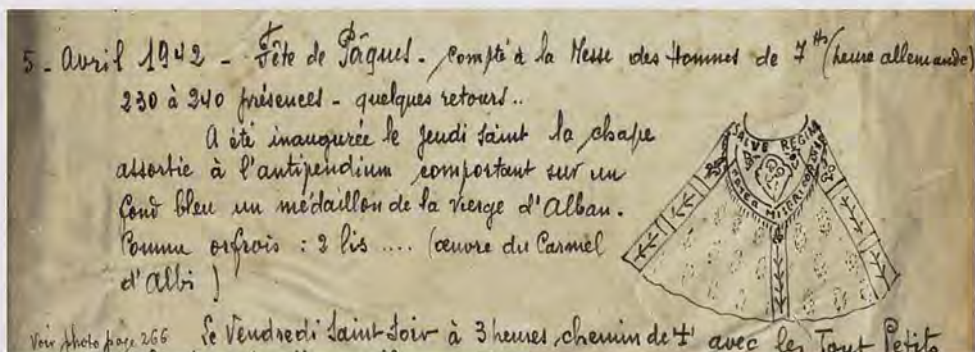 5 - Avril 1942 - Fête de Pâques. Compté à la Messe des Hommes de 7 Hs (heure allemande)
230 à 240 présences - quelques retours..
A été inaugurée le Jeudi Saint la chape
assortie à l'antipendium comportant sur un
fond bleu un médaillon de la Vierge d'Alban.
Comme orfrois : 2 lis .... (œuvre du Carmel
d'Albi )
SALVE REGINA
MATER MISERICORDIAE
Voir photo page 266
Le Vendredi Saint Soir à 3 heures, chemin de + avec les Tout Petits